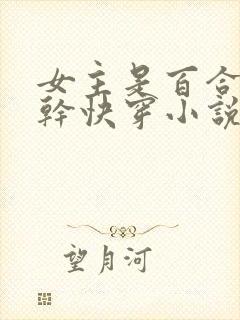 女主是百合
幹快穿小說
望月河